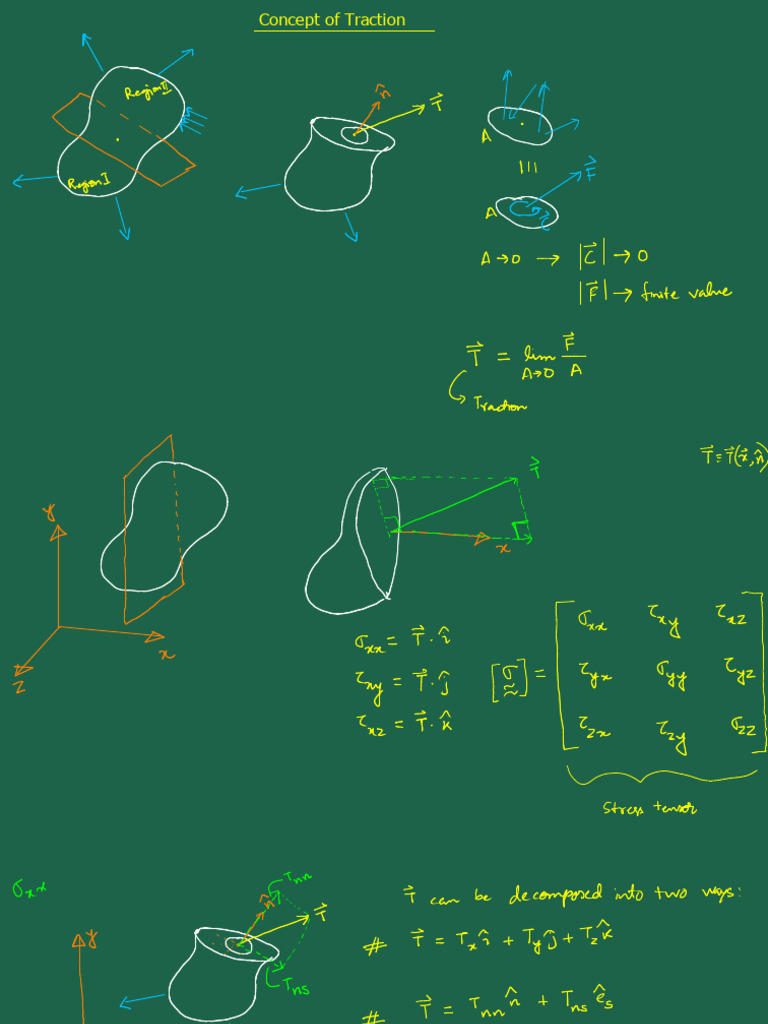 Concept of Traction
Region II
Region I
n̂
T⃗
A
|||
F⃗
A
A→0 → |C⃗| → 0
|F⃗| → finite value
T⃗ = lim A→0 F⃗/A
Traction
T⃗ ≡ T⃗(x⃗, n̂)
y
x
z
T⃗
x
σxx = T⃗ · î
τxy = T⃗ · ĵ
τxz = T⃗ · k̂
[σ] = [σxx τxy τxz
τyx σyy τyz
τzx τzy σzz]
Stress tensor
σxx
y
Tnn
n̂
T⃗
Tns
T⃗ can be decomposed into two ways:
# T⃗ = Tx î + Ty ĵ + Tz k̂
# T⃗ = Tnn n̂ + Tns ês